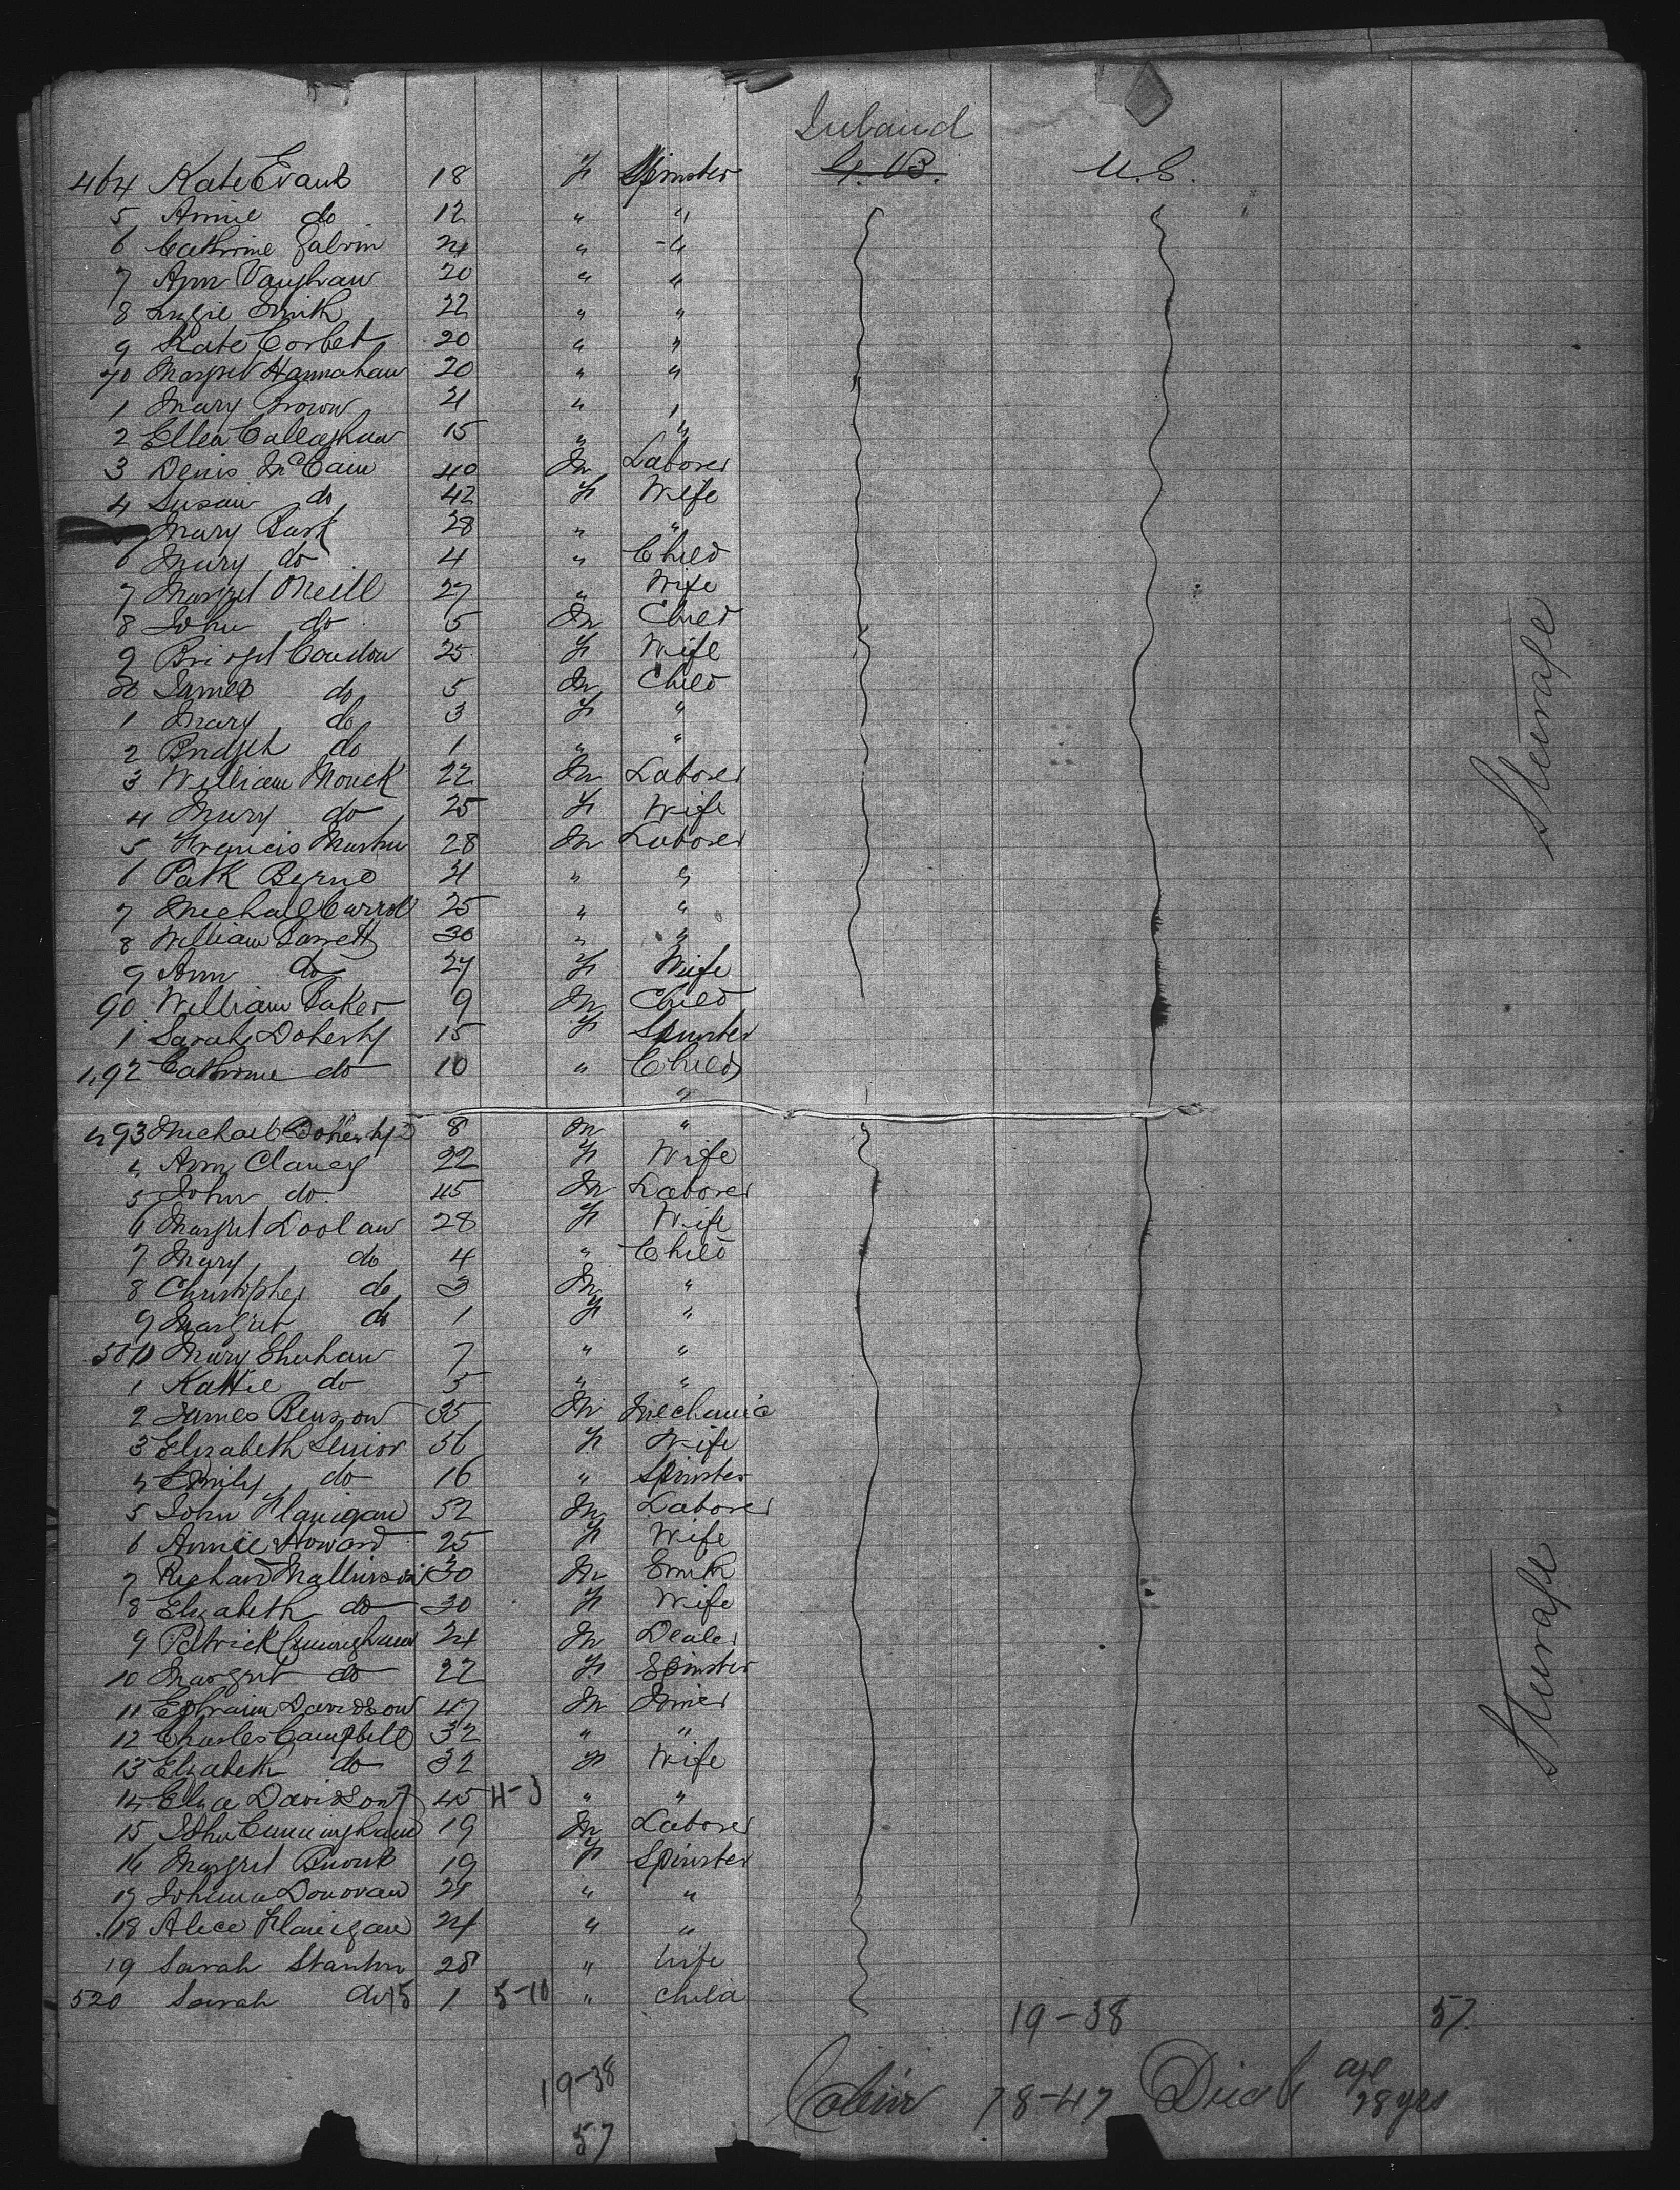 Ireland
464 Kate Evans 18 F Spinster G. B. U.S.
5 Annie do 12 " "
6 Cathrine Galvin 24 " "
7 Ann Vaughan 20 " "
8 Lizzie Smith 22 " "
9 Kate Corbet 20 " "
70 Margret Hannahan 20 " "
1 Mary Brown 21 " "
2 Ellen Callaghan 15 " "
3 Denis McCain 40 M Laborer
4 Susan do 42 F Wife
Mary Bark 28 " "
6 Mary do 4 " Child
7 Margret Oneill 27 " Wife
8 John do 5 M Child
9 Bridget Condon 25 F Wife
80 James do 5 M Child
1 Mary do 3 F "
2 Bridget do 1 " "
3 William Monck 22 M Laborer
4 Mary do 25 F Wife
5 Francis Martin 28 M Laborer
6 Patk Byrne 21 " "
7 Michael Carroll 25 " "
8 William Barrett 30 " "
9 Ann do 27 F Wife
90 William Baker 9 M Child
1 Sarah Doherty 15 F Spinster
492 Cathrine do 10 " Child
"
493 Michael Doherty 8 M "
4 Ann Clancy 22 F Wife
5 John do 45 M Laborer
6 Margret Doolan 28 F Wife
7 Mary do 4 " Child
8 Christopher do 3 M "
9 Margret do 1 F "
500 Mary Shehan 7 " "
1 Kattie do 5 " "
2 James Benson 35 M Mechanic
3 Elizabeth Senior 56 F Wife
4 Emily do 16 " Spinster
5 John Flanigan 52 M Laborer
6 Annie Howard 25 F Wife
7 Richard Mallinson 30 M Smith
8 Elizabeth do 30 F Wife
9 Patrick Cunningham 24 M Dealer
10 Margret do 22 F Spinster
11 Ephraim Davidson 47 M Joiner
12 Charles Campbell 32 " "
13 Elizabeth do 32 F Wife
14 Eliza Davidson 45 4-3 " "
15 John Cunningham 19 M Laborer
16 Margret 19 F Spinster
17 Donovan 21 " "
18 Alice Flanigan 24 " "
19 Sarah Stanton 28 " Wife
520 Sarah do 15 1 5-10 " Child
19-38 57
19-38
57
Cabin 78-47 age 28 yrs
Steerage
Steerage